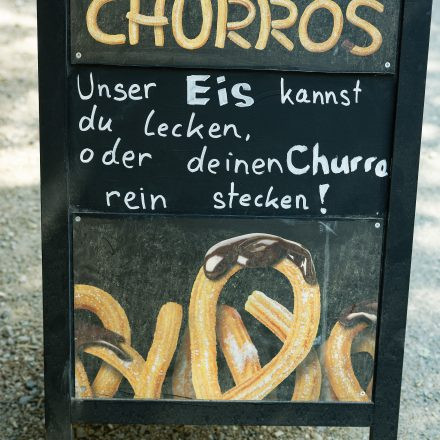 CHURROS
Unser Eis kannst
du lecken,
oder deinen Churro
rein stecken!